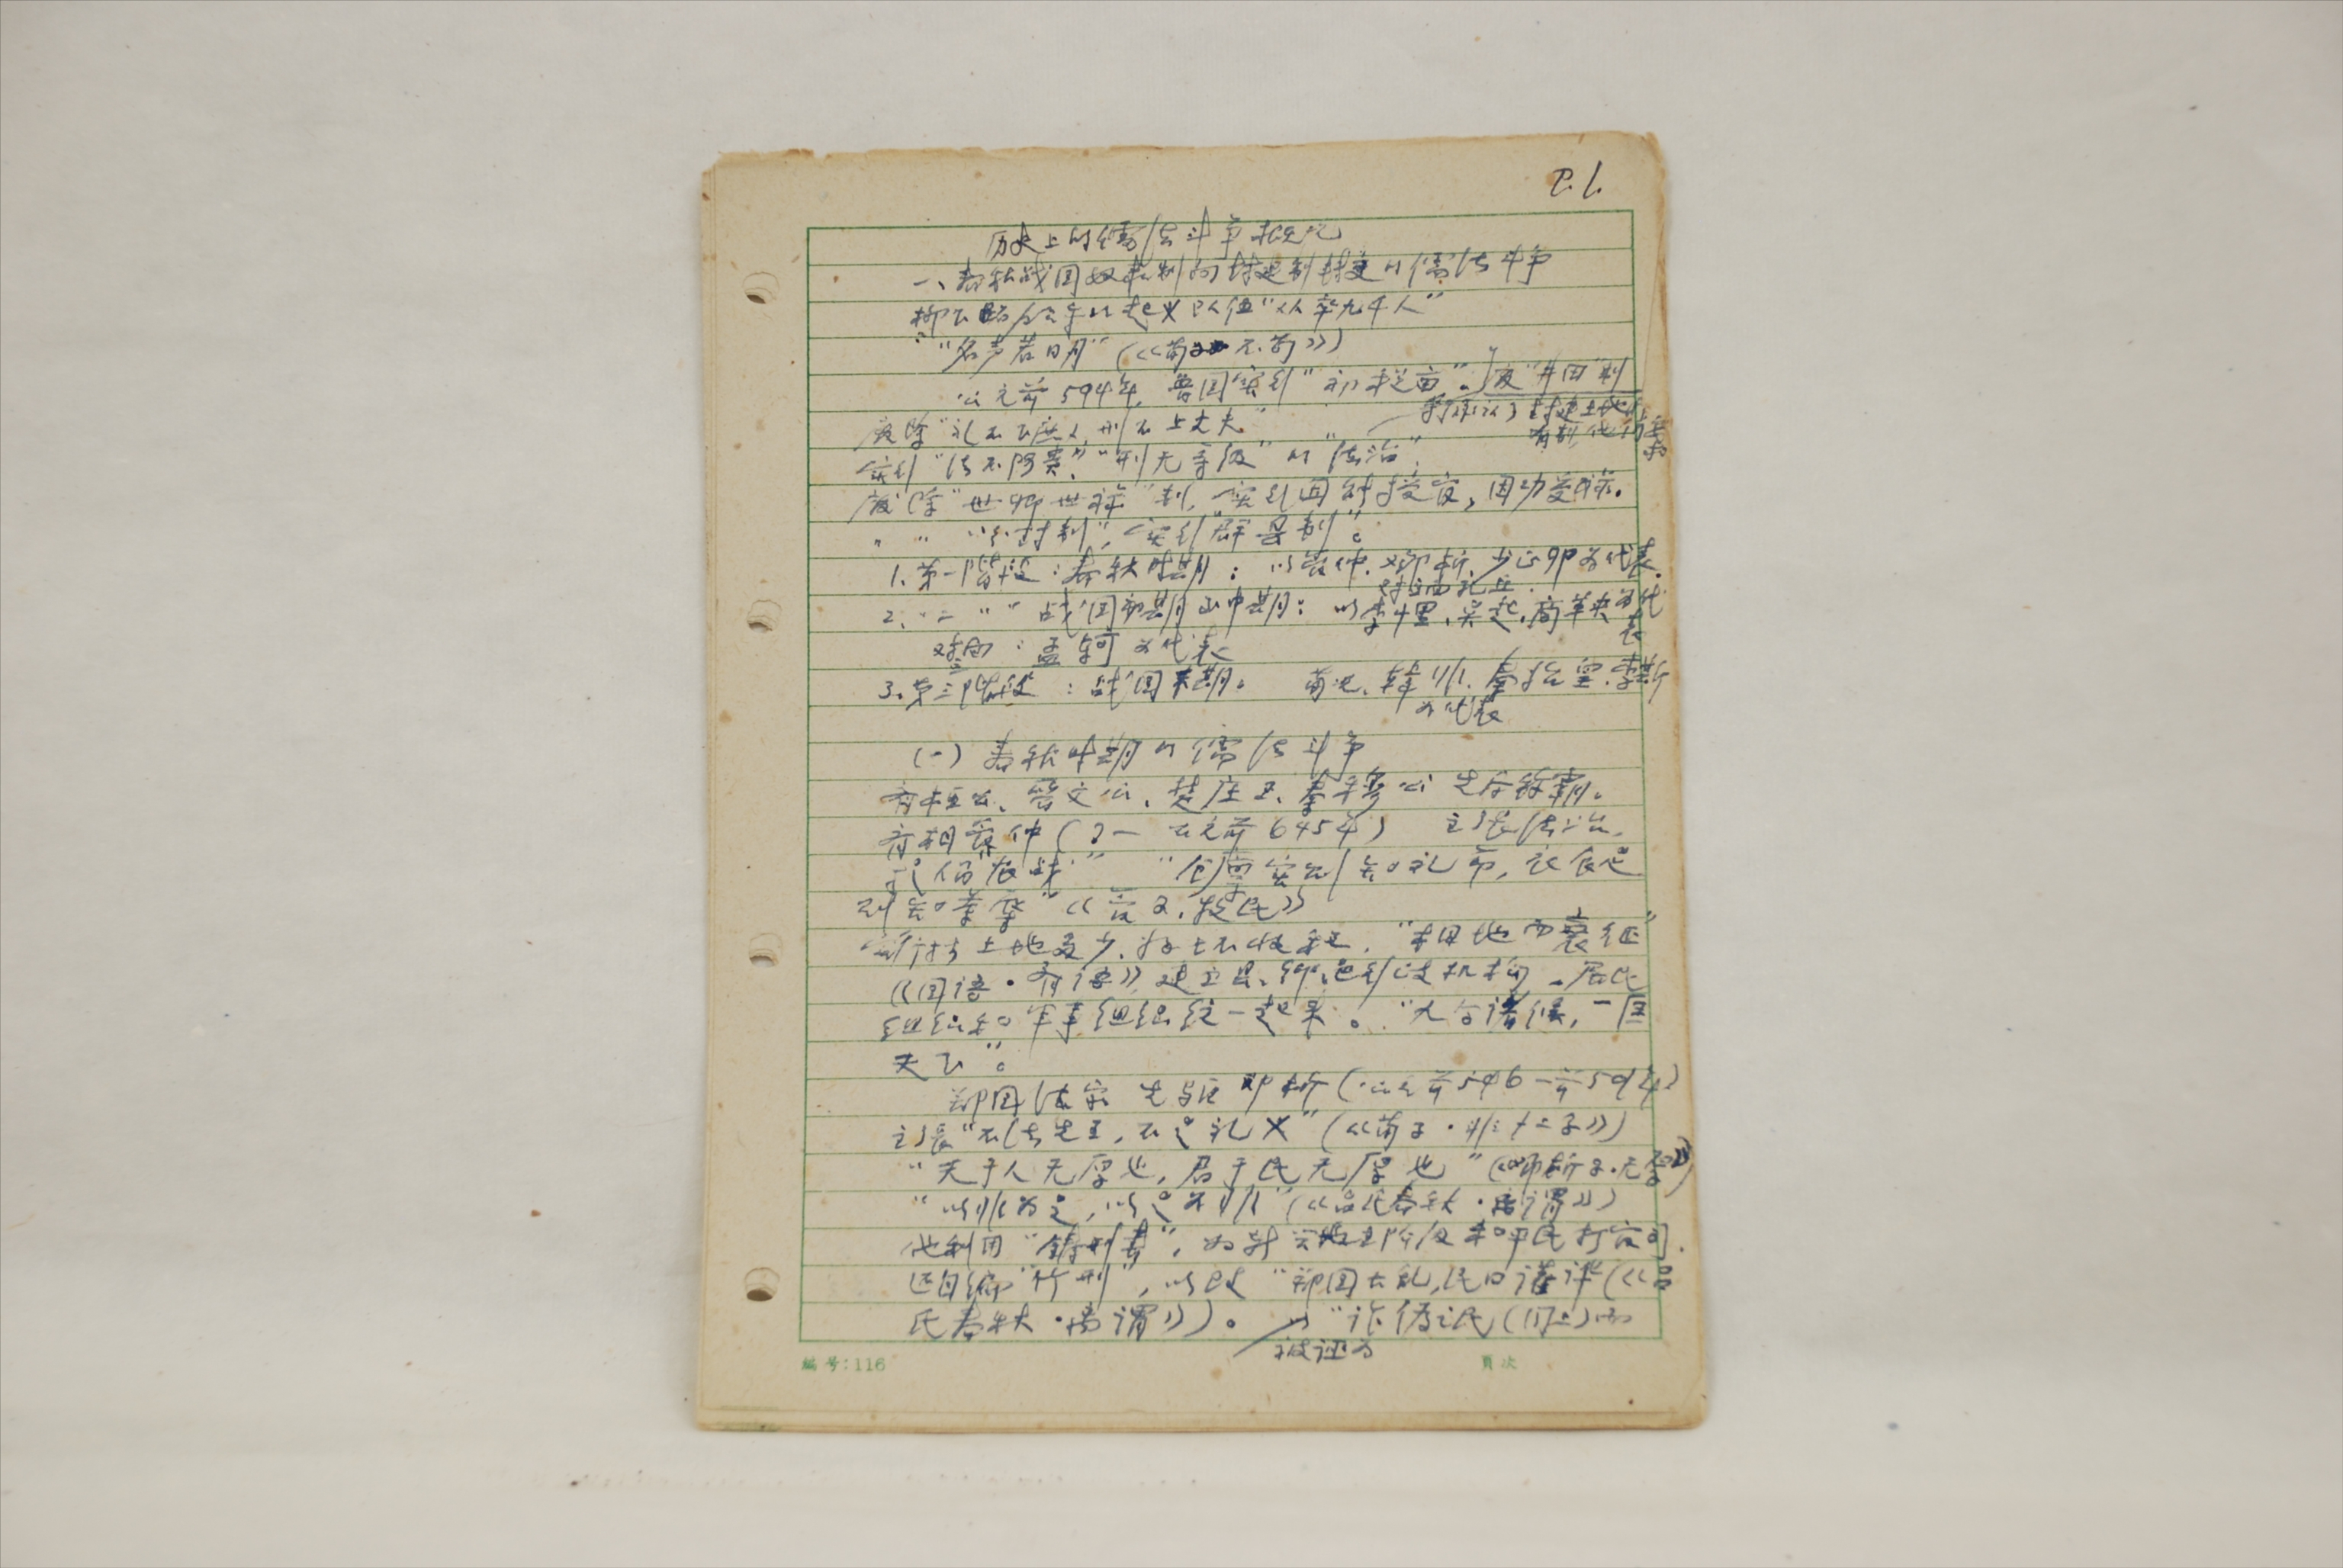 P.1.
历史上的儒法斗争概况
一、春秋战国奴隶制向封建制转变的儒法斗争
柳下跖公手的起义队伍“从卒九千人”
“名声若日月”（《荀子·不苟》）
公元前594年，鲁国实行“初税亩”。废“井田”制
到承认了封建土地所
有制，他们要求
废除“礼不下庶人，刑不上大夫”
实行“法不阿贵”，“刑无等级”的“法治”。
废除“世卿世禄”制，实行因能授官，因功受禄。
〃 〃 “分封制”，实行“群县制”。
1、第一阶段：春秋时期：以管仲、邓析、少正卯为代表。
对立面孔丘．
2、〃二〃〃 战国初期到中期：以李悝、吴起、商鞅为代
表
对立面：孟轲为代表
3、第三阶段：战国末期。 荀况、韩非、秦始皇、李斯
为代表
(一) 春秋时期的儒法斗争
齐桓公、晋文公、楚庄王、秦穆公先后称霸。
齐相管仲（？— 公元前645年） 主张法治。
提倡“农战” “仓廪实则知礼节，衣食足
则知荣辱”《管子·牧民》
实行按土地多少、好坏收租，“相地而衰征”
《国语·齐语》，建立县、乡、邑行政机构，居民
组织和军事组织统一起来。“九合诸候，一匡
天下”。
郑国法家先驱邓析（公元前546—前501年）
主张“不法先王，不是礼义”（《荀子·非十二子》）
“天于人无厚也，君于民无厚也”（《邓析子·无厚》）
“以非为是，以是为非”（《吕氏春秋·离谓》）
他利用“铸刑书”，为新兴地主阶级和平民打官司．
还自编“竹刑”，以致“郑国大乱，民口讙哗（《吕
氏春秋·离谓》）。以“诈伪之民（同上）而
被诬为
編号：116
頁次